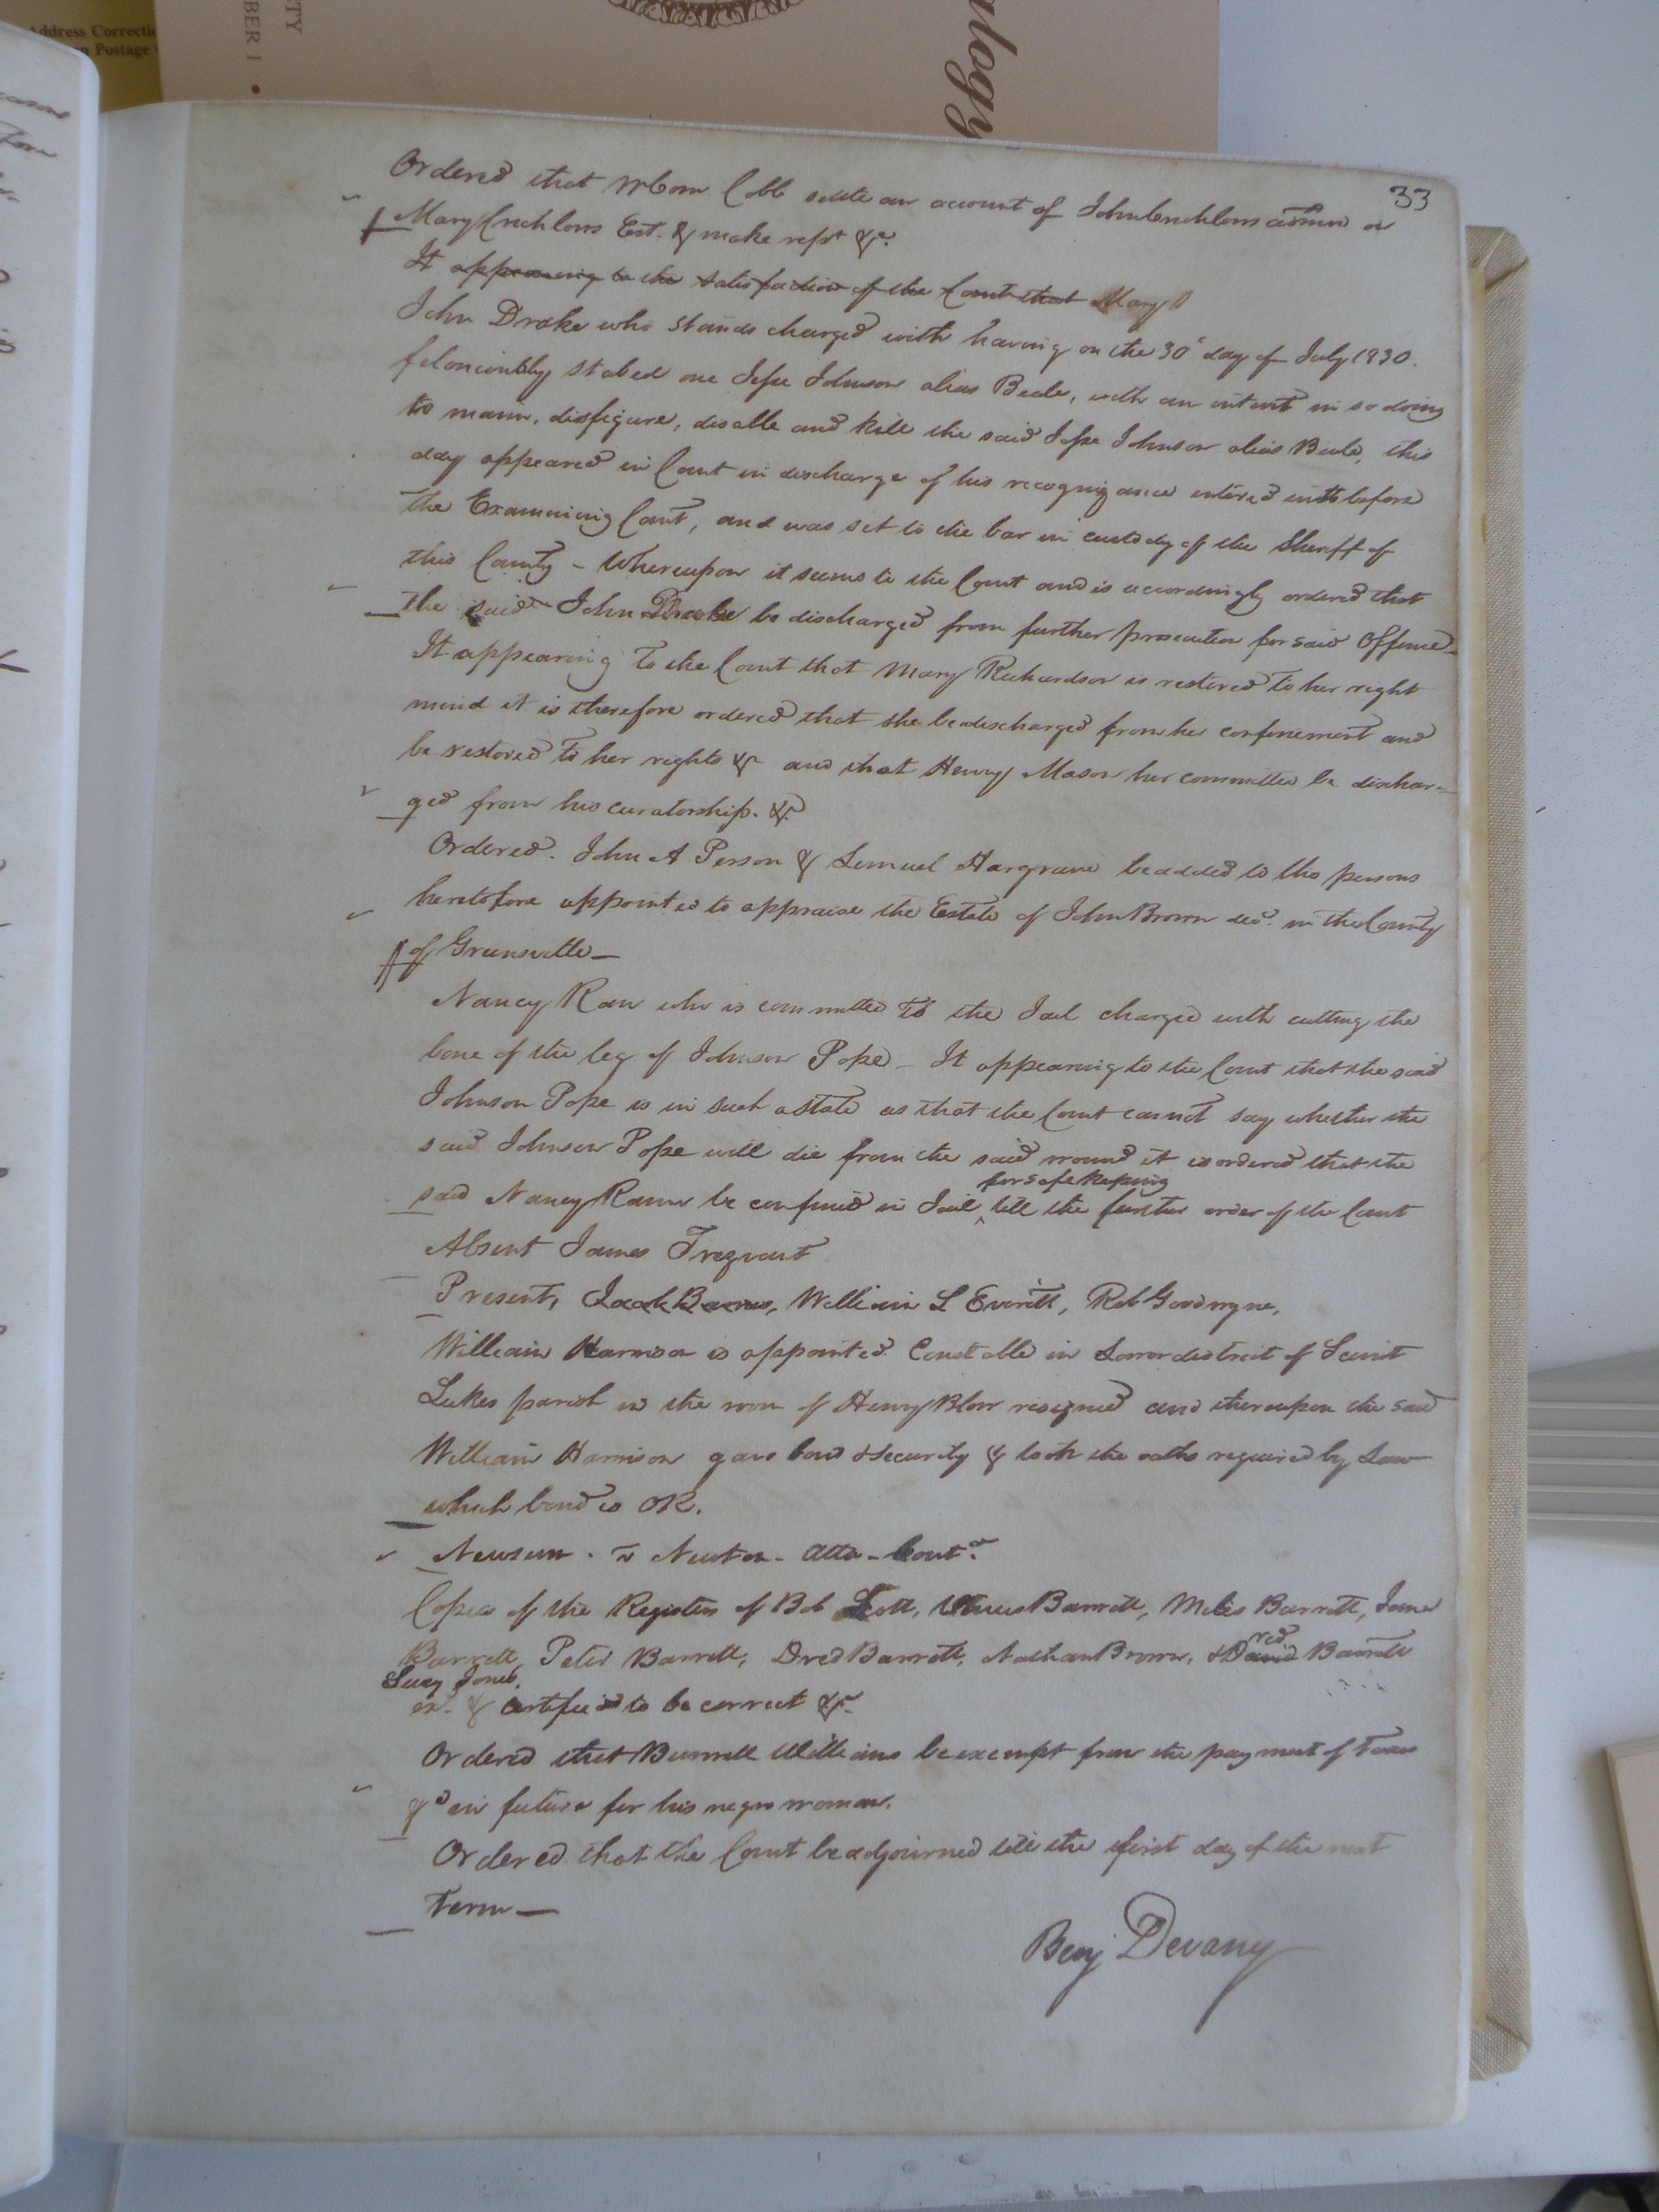 Address Correctio
n Postage
TY
BER 1 •
logy
33
Ordered that Wm Cobb settle an account of John Crichlows admn on
Mary Crichlows Est. & make rept &c.
It appearing to the satisfaction of the Court that Mary
John Drake who stands charged with having on the 30th day of July 1830.
feloniously stabed one Jesse Johnson alias Beale, with an intent in so doing
to maim, disfigure, disable and kill the said Jesse Johnson alias Beale, this
day appeared in Court in discharge of his recognizance entered into before
the Examining Court, and was set to the bar in custody of the Sheriff of
this County – Whereupon it seems to the Court and is accordingly ordered that
the said John Drake be discharged from further prosecution for said Offence –
It appearing to the Court that Mary Richardson is restored to her right
mind it is therefore ordered that she be discharged from her confinement and
be restored to her rights &c and that Henry Mason her committee be dischar=
ged from his curatorship. &c.
Ordered. John A Person & Lemuel Hargrave be added to the persons
heretofore appointed to appraise the Estate of John Brown decd. in the County
of Greensville –
Nancy Ran who is committed to the Jail charged with cutting the
bone of the leg of Johnson Pope – It appearing to the Court that the said
Johnson Pope is in such a state as that the Court cannot say whether the
said Johnson Pope will die from the said wound it is ordered that the
said Nancy Rann be confined in Jail ^ for safe keeping till the further order of the Court
Absent James Trezvant
Present, William L Everitt, Rob Goodwyne,
William Harrison is appointed Constable in Lower district of Saint
Lukes parish in the room of Henry Blow resigned and thereupon the said
William Harrison gave bond & security & took the oaths required by Law
which bond is OR.
Newsum . vs Newton – atta – Contd.
Copies of the Registers of Bob Scott, Barrett, Miles Barrett, Jane
Barrett, Peter Barrett, Dred Barrett, Nathan Brown, & Dred Barrett
Lucy Jones,
ex. & certified to be correct &c.
Ordered that Burwell Williams be exempt from the payment of taxes
&c in future for his negro woman.
Ordered that the Court be adjourned till the first day of the next
Term –
Benj Devany